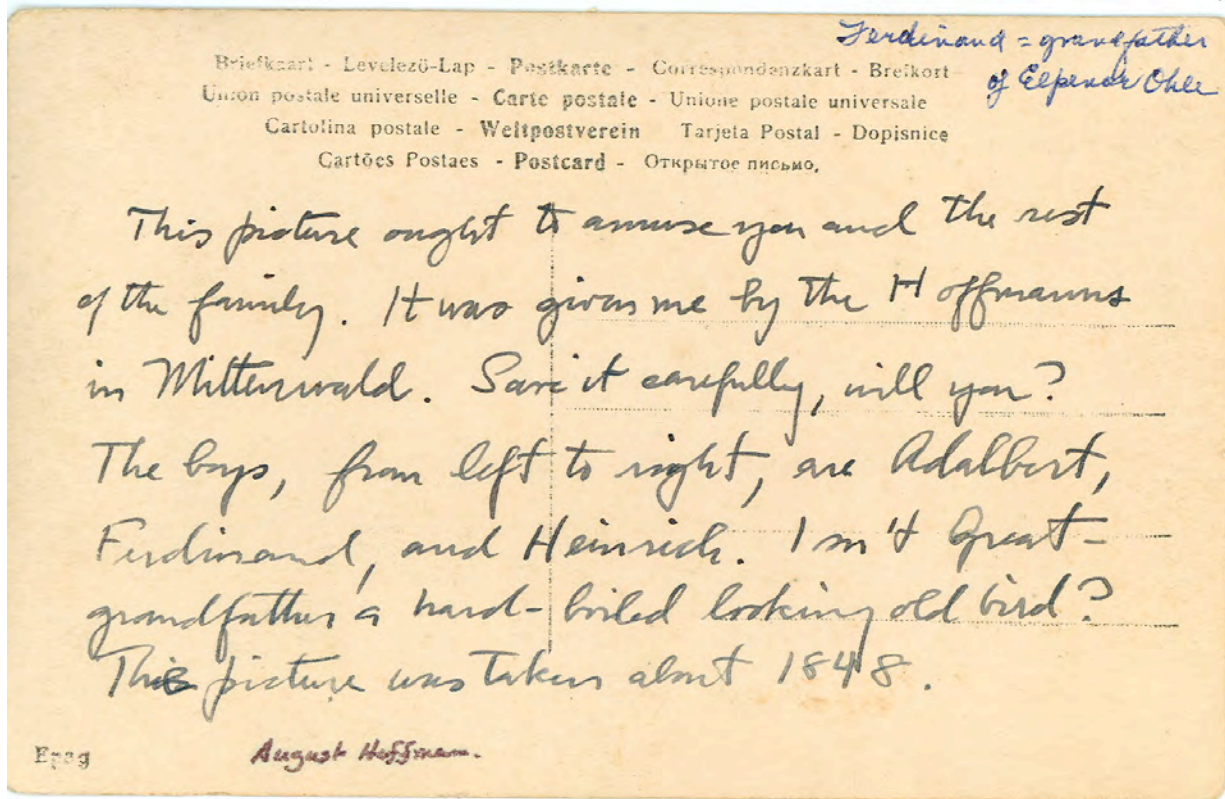 Ferdinand = grandfather
of Elpenor Ohle
Briefkaart - Levelező-Lap - Postkarte - Correspondenzkart - Brefkort
Union postale universelle - Carte postale - Unione postale universale
Cartolina postale - Weltpostverein Tarjeta Postal - Dopisnice
Cartões Postaes - Postcard - Открытое письмо.
This picture ought to amuse you and the rest
of the family. It was given me by the Hoffmanns
in Mittenwald. Save it carefully, will you?
The boys, from left to right, are Adalbert,
Ferdinand, and Heinrich. Isn't Great-
grandfather a hard-boiled looking old bird?
This picture was taken about 1848.
Epag
August Hoffman.